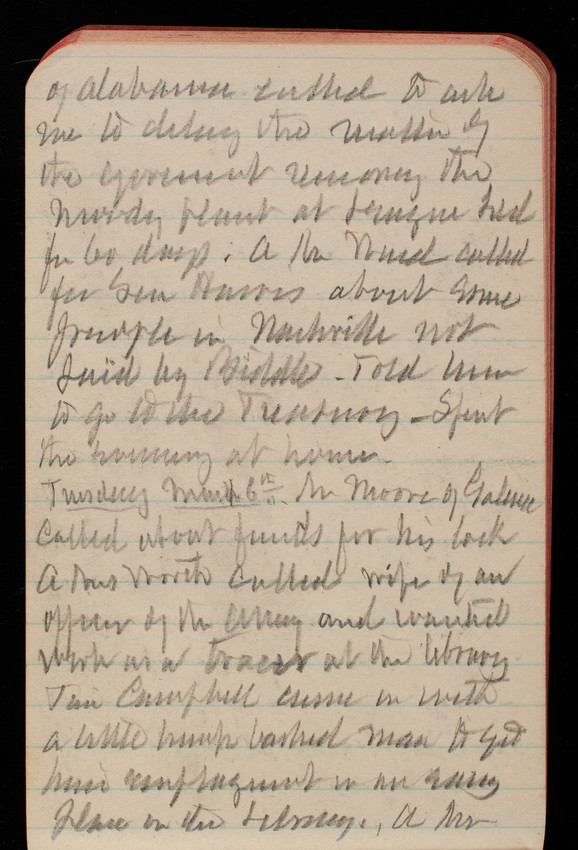 of Alabama called to ask
me to delay the matter of
the agreement removing the
Moody plant at League Isld
for 60 days. A Mr called
for Gen Harris about some
people in Nashville not
paid by Biddle - Told him
to go to the Treasury - Spent
the evening at home.
Tuesday March 6th. Mr Moore of Galena
called about funds for his lock
A Mrs Worth called wife of an
officer of the Army and wanted
work as a Tracer at the library
Tim Campbell came in with
a little hump backed man to get
him employment in an easy
place in the library., A Mr